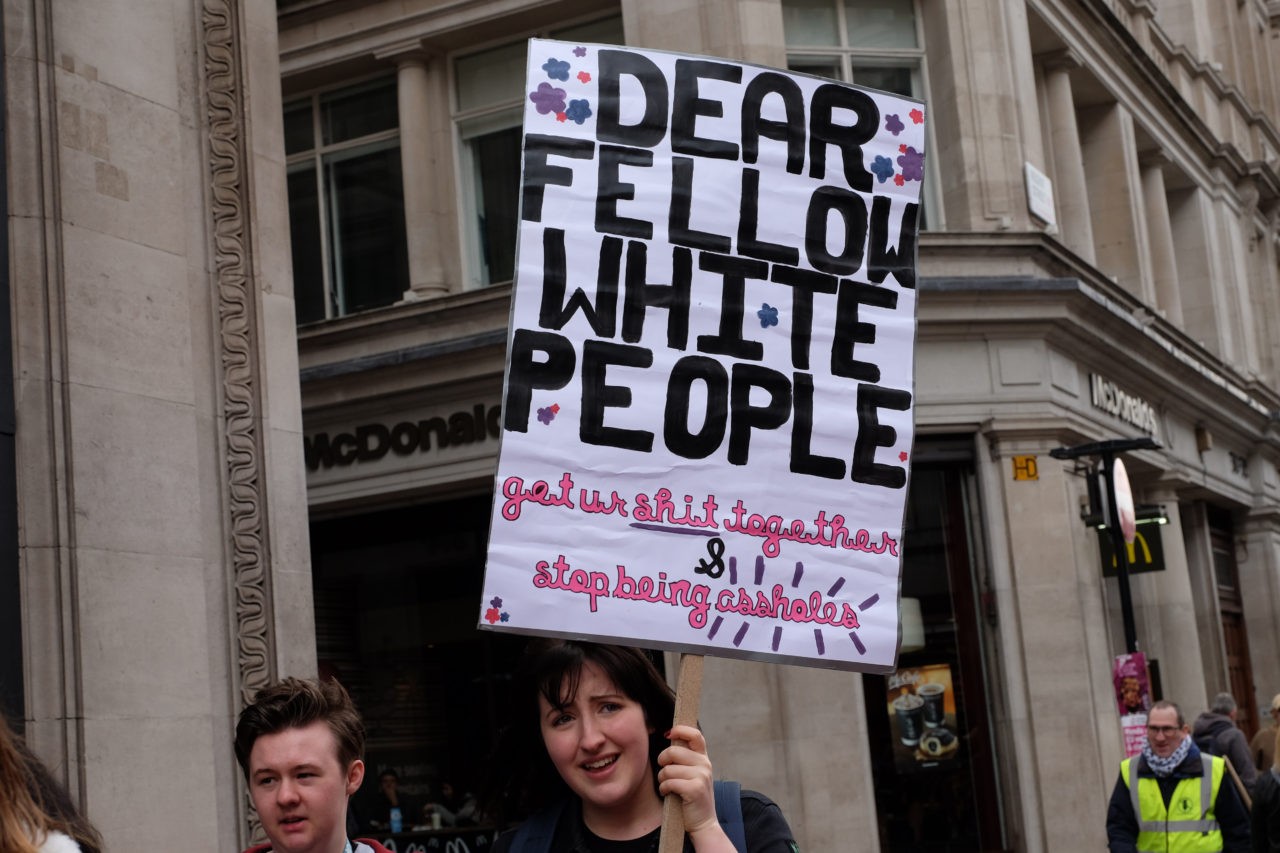 DEAR
FELLOW
WHITE
PEOPLE
get ur shit together
&
stop being assholes
McDonald
McDonald's
HD
McCafé